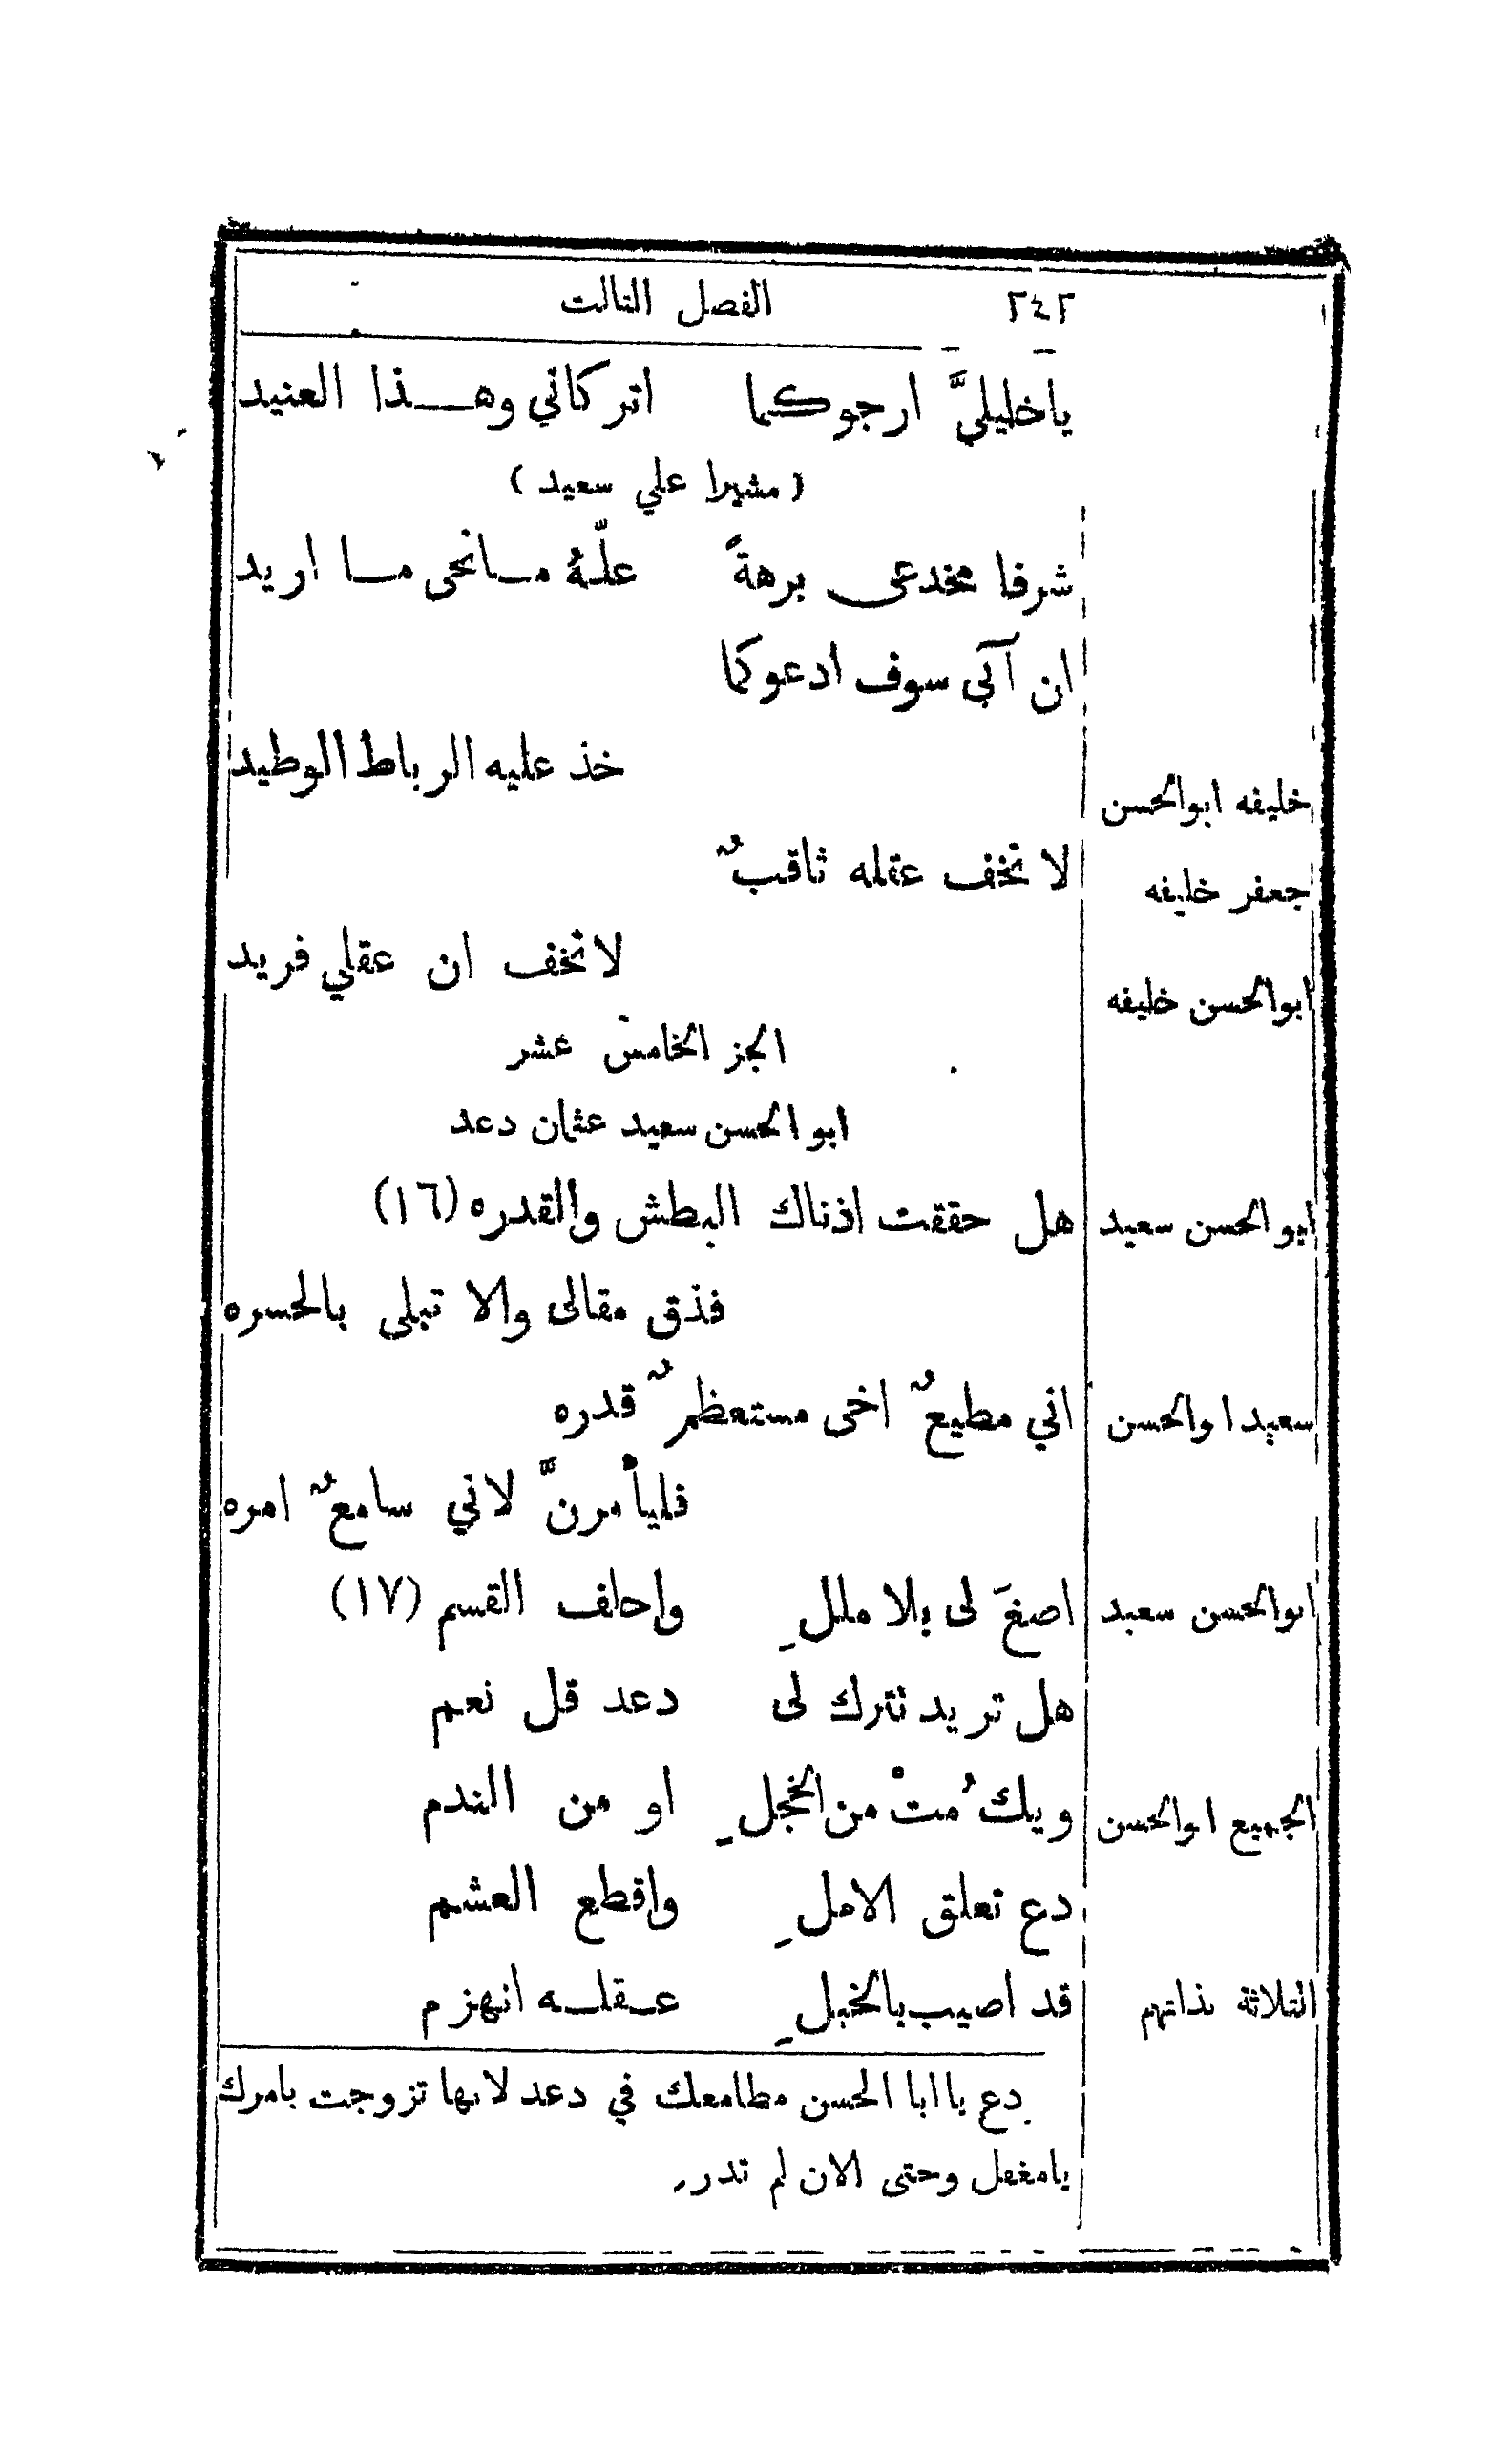 ٢٤٢ الفصل الثالث
ياخليليَّ ارجوكما اتركاني وهـــذا العنيد
( مشيرا علي سعيد )
شرفا مخدعى برهةً علّهُ مـانحى مـا اريد
ان آبَى سوف ادعوكما
خليفه ابوالحسن خذ عليه الرباط الوطيد
جعفر خليفه لا تخف عقله ثاقبٌ
ابوالحسن خليفه لا تخف ان عقلي فريد
الجز الخامس عشر
ابو الحسن سعيد عثمان دعد
ابو الحسن سعيد هل حققت اذناك البطش والقدره (١٦)
فذق مقالى والا تبلى بالحسره
سعيد ابوالحسن اني مطيعٌ اخى مستعظمٌ قدره
فليأمرنَّ لاني سامعٌ امره
ابوالحسن سعيد اصغَ لى بلا مللِ واحلف القسم (١٧)
هل تريد تترك لى دعد قل نعم
الجميع ابوالحسن ويك مُتْ من الخجلِ او من الندم
دع تعلق الاملِ واقطع العشم
الثلاثة بذاتهم قد اصيب بالخبلِ عـقلـه انهزم
دع يا ابا الحسن مطامعك في دعد لانها تزوجت بامرك
يامغفل وحتى الان لم تدر